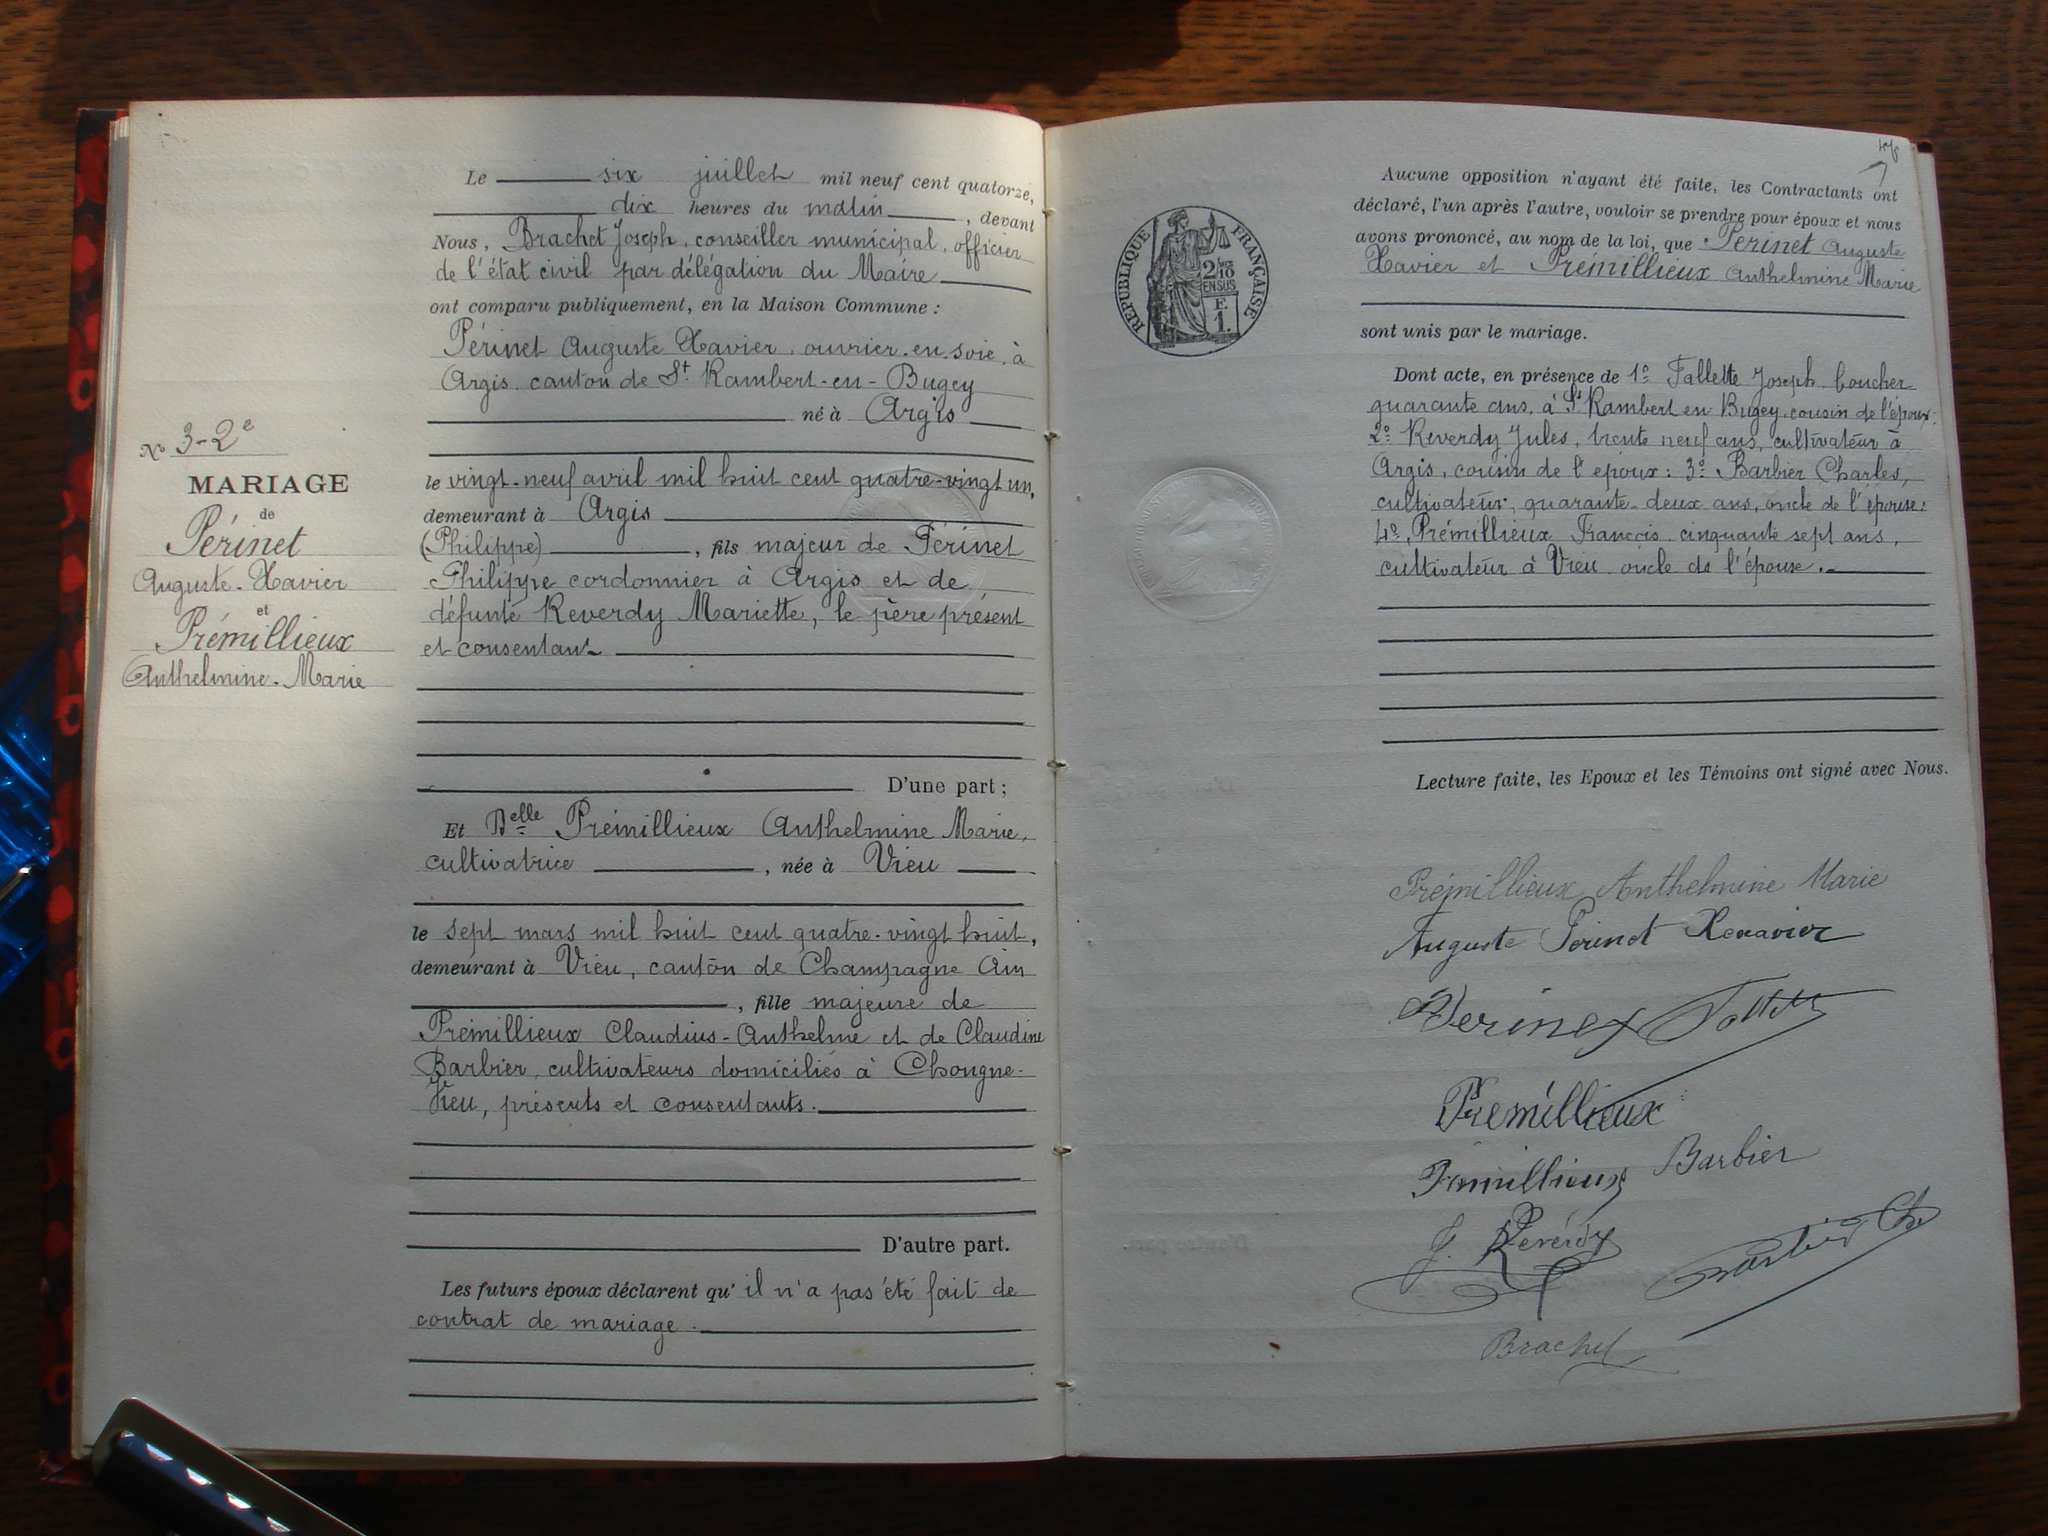 Nº 3-2e
MARIAGE
de
Périnet
Auguste-Xavier
et
Prémillieux
Anthelmine-Marie
Le six juillet mil neuf cent quatorze,
dix heures du matin, devant
Nous, Brachet Joseph, conseiller municipal, officier
de l'état civil par délégation du Maire
ont comparu publiquement, en la Maison Commune :
Périnet Auguste Xavier, ouvrier en soie, à
Argis canton de St Rambert-en-Bugey
né à Argis
le vingt-neuf avril mil huit cent quatre-vingt un,
demeurant à Argis
(Philippe), fils majeur de Périnet
Philippe cordonnier à Argis et de
défunte Reverdy Mariette, le père présent
et consentant
D'une part ;
Et Delle Prémillieux Anthelmine Marie,
cultivatrice, née à Vieu
le sept mars mil huit cent quatre-vingt huit,
demeurant à Vieu, canton de Champagne Ain
, fille majeure de
Prémillieux Claudius-Anthelme et de Claudine
Barbier, cultivateurs domiciliés à Chongne-
Vieu, présents et consentants.
D'autre part.
Les futurs époux déclarent qu'il n'a pas été fait de
contrat de mariage.
RÉPUBLIQUE FRANÇAISE
2/10
EN SUS
F.
1.
Aucune opposition n'ayant été faite, les Contractants ont
déclaré, l'un après l'autre, vouloir se prendre pour époux et nous
avons prononcé, au nom de la loi, que Périnet Auguste
Xavier et Prémillieux Anthelmine Marie
sont unis par le mariage.
Dont acte, en présence de 1º Fallette Joseph boucher
quarante ans, à St Rambert en Bugey, cousin de l'époux;
2º Reverdy Jules, trente neuf ans, cultivateur à
Argis, cousin de l'époux : 3º Barbier Charles,
cultivateur, quarante-deux ans, oncle de l'épouse :
4º, Prémillieux François, cinquante sept ans,
cultivateur à Vieu oncle de l'épouse.
Lecture faite, les Epoux et les Témoins ont signé avec Nous.
Prémillieux Anthelmine Marie
Auguste Perinet Xexavier
Perinet
Premillieux
Barbier
J. Reverdy
Barbier Ch
Brachet